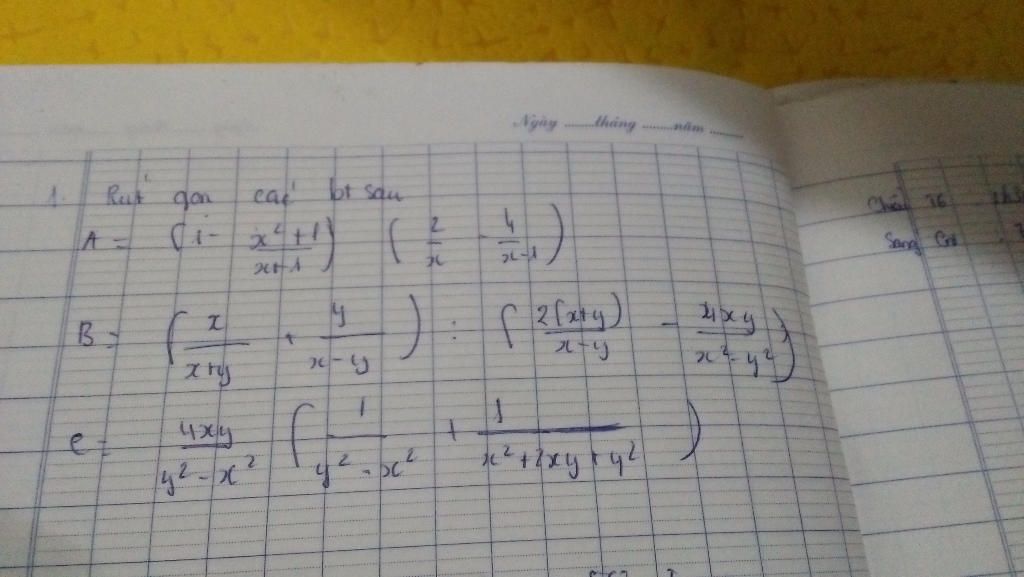 Ngày ........tháng ........năm ........
1. Rút gọn các bt sau
A = (1 - \frac{x² + 1}{x + 1}) (\frac{2}{x} - \frac{4}{x - 1})
B = (\frac{x}{x+y} + \frac{y}{x-y}) : (\frac{2(x+y)}{x-y} - \frac{4xy}{x² - y²})
C = \frac{4xy}{y² - x²} (\frac{1}{y² - x²} + \frac{1}{x² + 2xy + y²})